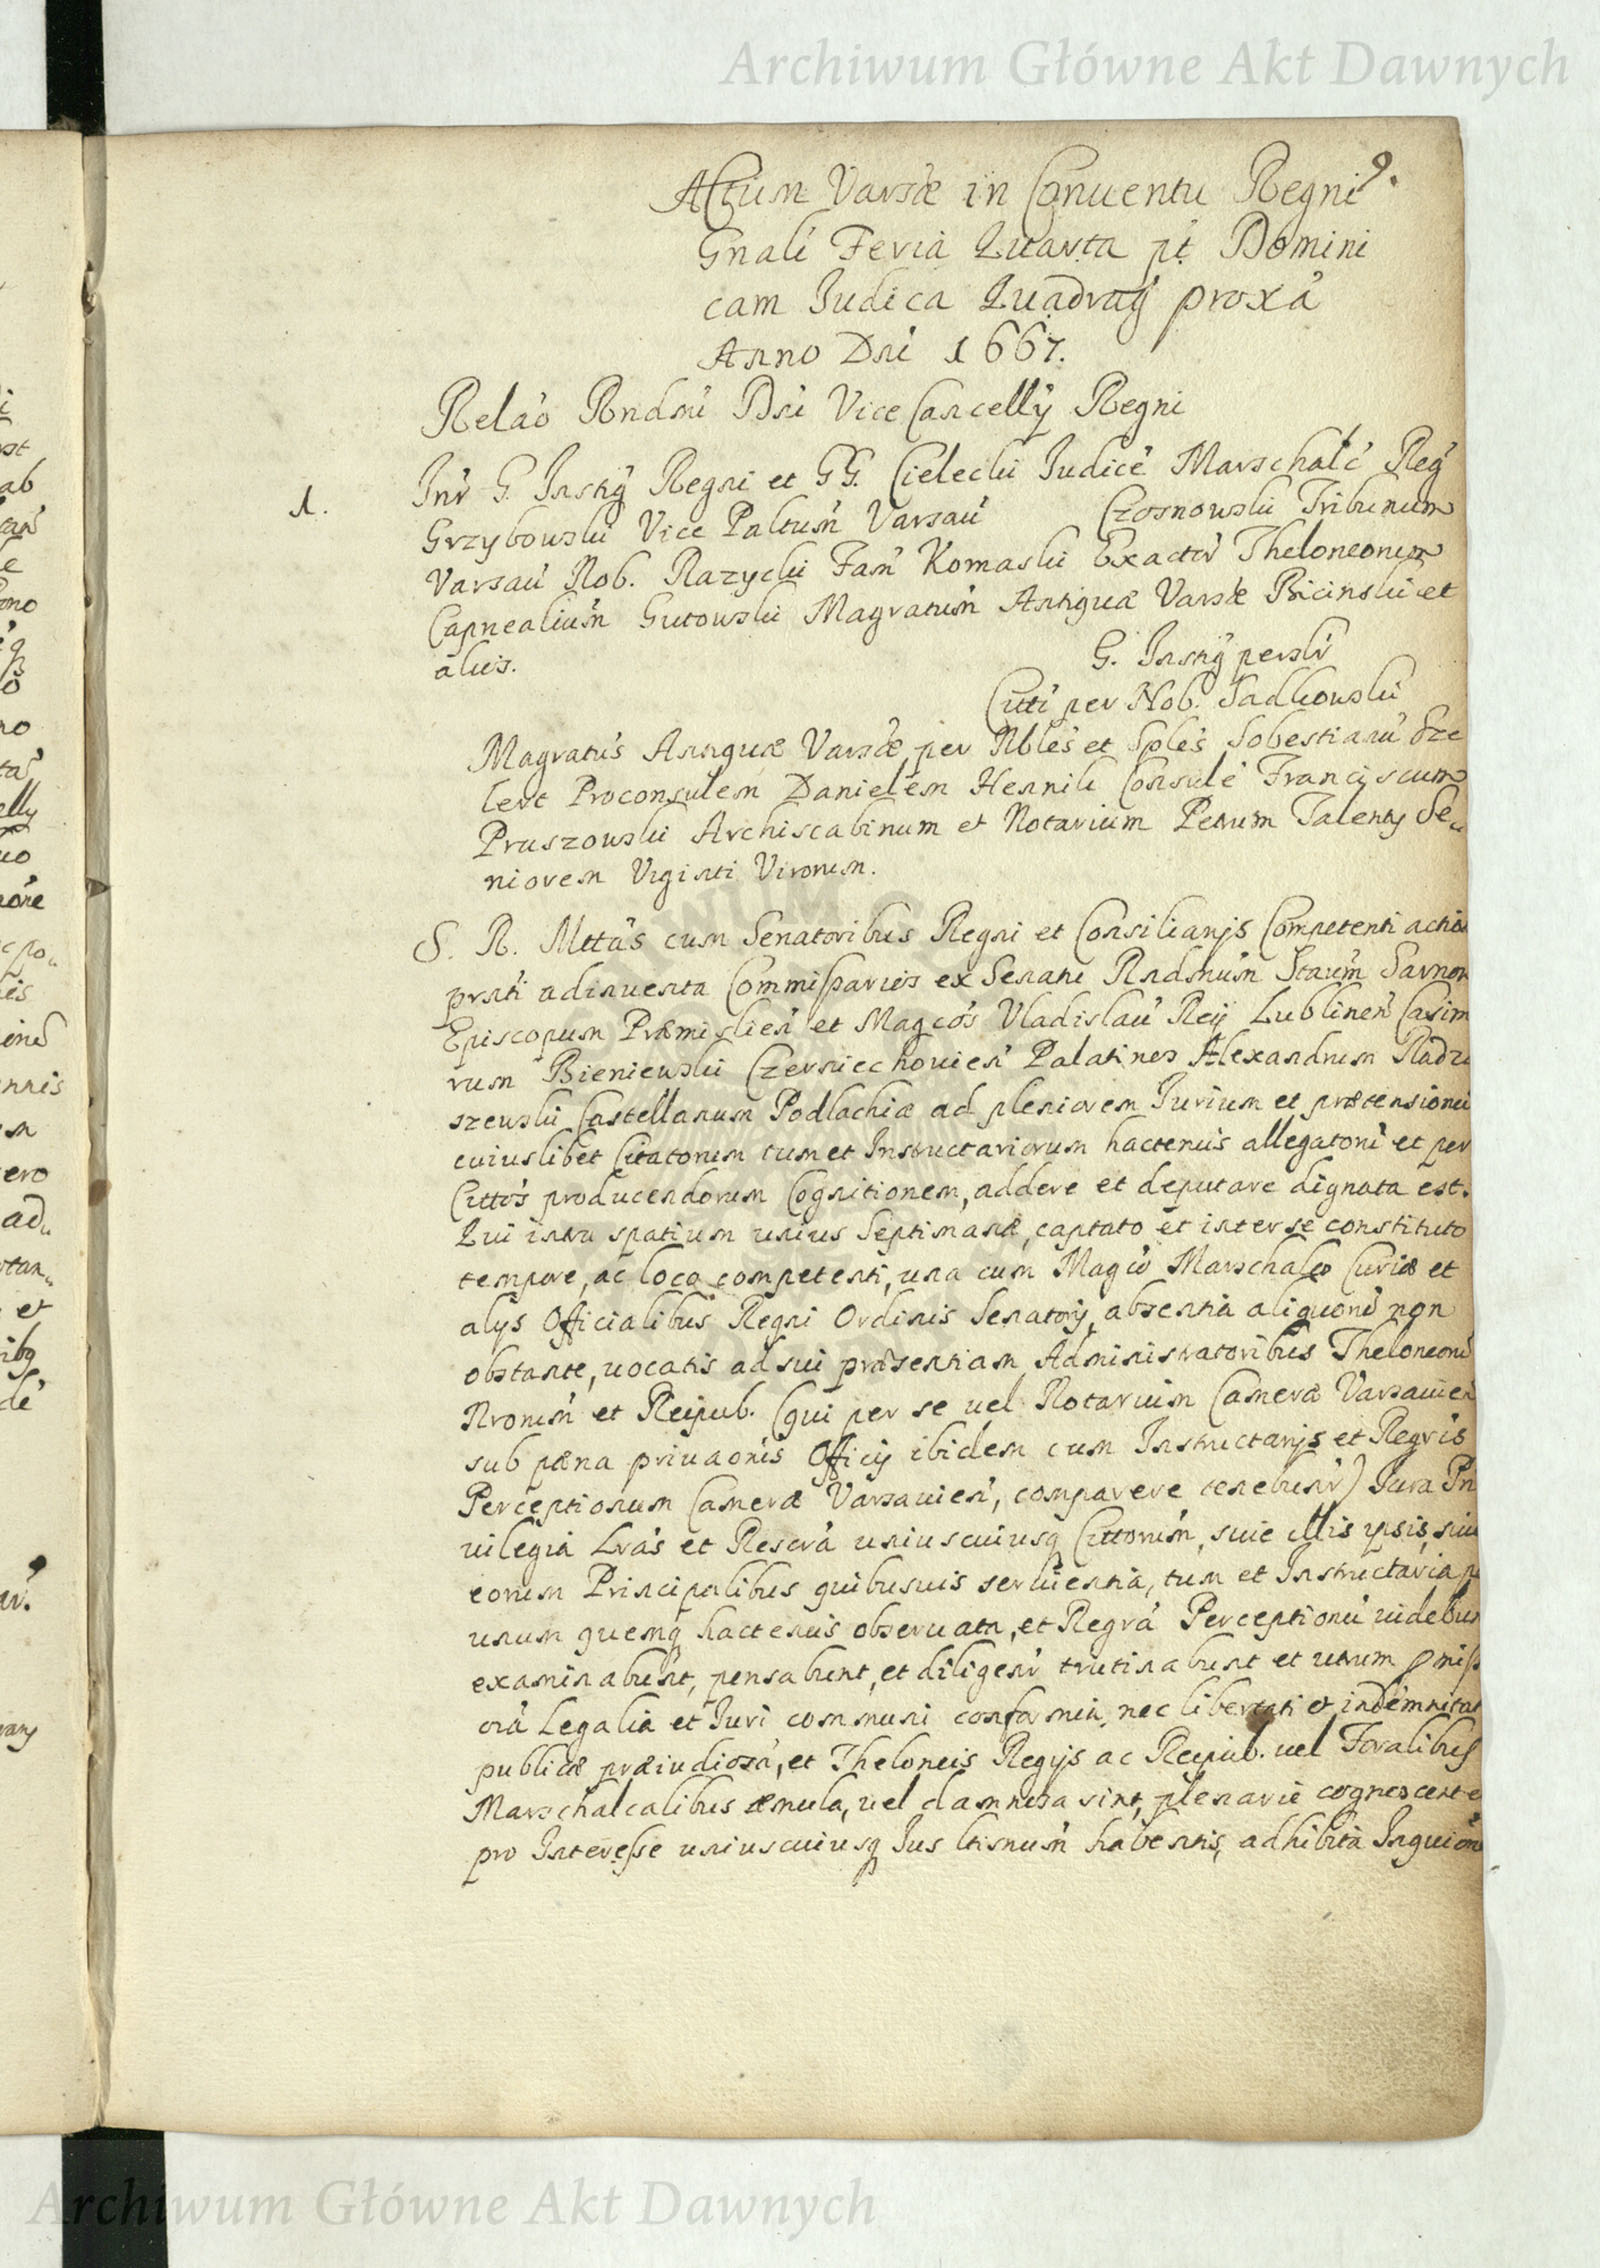 Archiwum Główne Akt Dawnych
9.
Actum Varsae in Conuentu Regni
Gnali Feria Quarta pt Domini
cam Iudica Quadrag proxa
Anno Dni 1667.
Relao Rndmi Dni Vice Cancellÿ Regni
1.
Inr G. Instig Regni et GG. Cielecki Iudice Marschalc Reg
Grzybowski Vice Paltum Varsau Czosnowski Tribunum
Varsau Nob. Razycki Fam Komaski Exactor Theloneorum
Capnealium Gutowski Magratum Antiquae Varsae Bicinski et
alios.
G. Instig perslr
Citti per Nob. Sadkowski
Magratus Antiquae Varsae per Nbles et Sples Sobestianu Sze
lert Proconsulem Danielem Hennik Consule Franciscum
Pruszowski Archiscabinum et Notarium Petrum Talenty Se
niorem Viginti Virorum.
S. R. Mttas cum Senatoribus Regni et Consiliarijs Competenti actio
prnti adinuenta Commissarios ex Senatu Rndmum Staum Sarnow
Episcopum Præmislien et Magcos Vladislau Reij Lublinen Casim
rum Bieniewski Czerniechouien Palatinos Alexandrum Radzi
szewski Castellanum Podlachiæ ad pleniorem Iurium et prætensionu
cuiuslibet Citatorum tum et Instructariorum hactenus allegatoru et per
Cittos producendorum Cognitionem, addere et deputare dignata est.
Qui intra spatium unius Septimanæ, captato et inter se constituto
tempore, ac loco competenti, una cum Magco Marschalco Curiæ et
alijs Officialibus Regni Ordinis Senatorij, absentia aliquoru non
obstante, uocatis ad sui præsentiam Administratoribus Theloneoru
Nrorum et Reipub. (qui per se uel Notarium Cameræ Varsauien
sub pæna priuaonis Officij ibidem cum Instructarijs et Regris
Perceptionum Cameræ Varsauien, comparere tenebunr) Iura Pri
uilegia Lras et Rescra uniuscuiusq Cittorum, siue illis ipsis, siue
eorum Principalibus quibusuis seruientia, tum et Instructaria p
unum quemq hactenus obseruata, et Regra Perceptionu uidebun
examinabunt, pensabunt, et diligenr trutinabunt et utrum pmiss
oia Legalia et Iuri communi conformia, nec libertati et indemnitat
publicæ præiudiosa, et Theloneis Regijs ac Reipub. uel Foralibus
Marschalcalibus æmula, uel damnosa sint, plenarie cognoscent et
pro Interesse uniuscuiusq Ius ltimum habentis, adhibita Inquione
Archiwum Główne Akt Dawnych